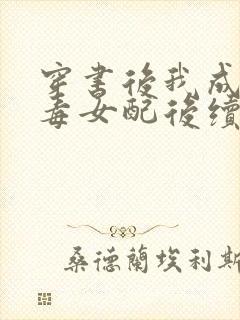 穿書後我成
毒女配後續
桑德蘭埃利斯